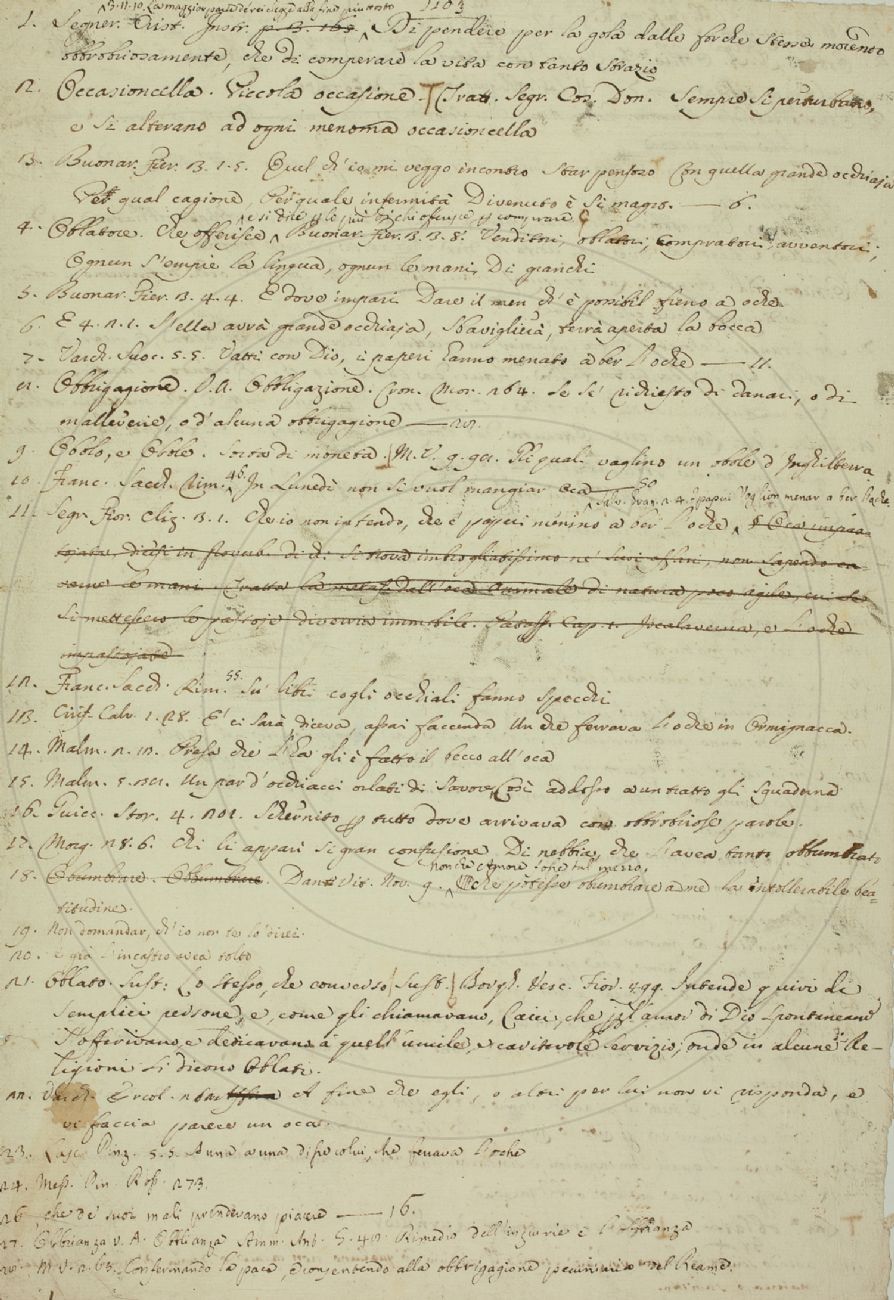 1103
3.11.10. La maggior parte
1. Segner. Crist. Instr. p. 3. 163. Di pendere per la gola dalle forche stesse morendo
obbrobriosamente, che di comperare la vita con tanto strazio
2. Occasioncella. Piccola occasione. Tratt. Segr. Cos. Don. Sempre si perturbano,
e si alterano ad ogni menoma occasioncella
3. Buonar. Fier. 3. 1. 5. Quel ch'io mi veggo incontro star pensoso Con quella grande occhiaja
Per qual cagione, Per quale infermità Divenuto è sì magro. — 6.
4. Oblatore. Che offerisce Buonar. Fier. 3. 3. 8. Venditori, oblatori, compratori, avventori;
e si dice per lo più di chi offerisce per comprare
Ognun s'empie la lingua, ognun le mani, Di granchi
5. Buonar. Fier. 3. 4. 4. E dove impari Dare il men ch'è possibil fieno a oche
6. E 4. 2. 1. Stella avrà grande occhiaja, sbaviglierà, terrà aperta la bocca
7. Varch. Suoc. 5. 5. Vatti con Dio, i paperi hanno menato a ber l'oche — 11.
8. Obbligagione. V. A. Obbligazione. Cron. Mor. 264. Se se' richiesto di danari, o di
malleverie, o d'alcuna obbligagione
9. Obolo, e Obole. Sorta di moneta M. V. 9. 98. De' quali vaglino un obole d'Inghilterra
10. Franc. Sacch. Rim. 46. In Lunedì non si vuol mangiar oca
i paperi voglion menar a ber l'oche
11. Segr. Fior. Cliz. 3. 1. Che io non intendo, che i paperi menino a ber l'oche Oca impas-
tojata, dicesi in proverb. di chi si trova imbrogliatissimo ne' suoi affari, non sapendo ca-
varne le mani. Tratta la metaf. dall'oca animale di natura poco agile, cui se
si mettessero le pastoje diverria immobile. Pataff. Cap. 1. e l'oche
impastojate
12. Franc. Sacch. Rim. 55. Su' libri cogli occhiali fanno specchi
13. Ciriff. Calv. 1. 28. E' ci sarà diceva, assai faccenda Un che ferrava l'oche in Ormignacca.
14. Malm. 2. Presa che l'ha gli è fatto il becco all'oca
15. Malm. 5. Un par d'occhiacci orlati di savore, Così addosso a un tratto gli squaderna
16. Guicc. Stor. 4. 201. Schernito per tutto dove arrivava con obbrobriose parole.
17. Morg. 28. 6. Chi li apparì sì gran confusione Di nebbia, che l'avea tanto obbumbrato
18. Obumbrare. Obbumbrare. Dant. Vit. Nov. 9. Che potesse obumbrare a me la intollerabile bea-
Non che Amore fosse tal mezzo,
titudine.
19. Non domandar, ch'io non te lo direi.
20. E già l'incastro avea tolto
21. Oblato. Sust: Lo stesso, che converso Sust. Borgh. Vesc. Fior. 499. Intende quivi di
semplici persone, e, come gli chiamavano, Laici, che per l'amor di Dio spontaneamente
s'offerivano, e dedicavano a quell'umile, e caritevole servizio; onde in alcune Re-
ligioni si dicono Oblati.
22. Varch. Ercol. A fine che egli, o altri per lui non vi risponda, e
vi faccia parere un oca
23. Lasc. Pinz. 5. 5. A una a una di piccolui, che ferrava l'oche
24. Mess. Cin. Rif. 273.
26. che de' suoi mali prendevano piacere — 16.
27. Obblianza v. A. Obblianza Amm. Ant. Rimedio dell'ingiurie è l'obblianza
28. M. V. 2. 63. Confermando la pace, e consentendo alla obbrigagione pecuniaria del Reame,